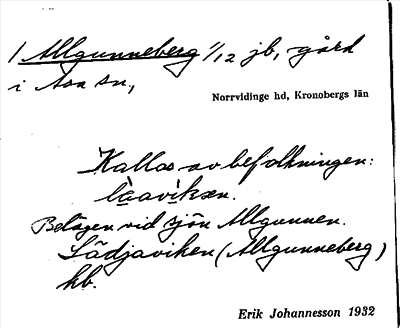 1 Allgunneberg 1/12 jb, gård
i Asa sn,
Norrvidinge hd, Kronobergs län
Kallas av befolkningen:
làaviksen.
Belägen vid sjön Allgunnen.
Lädjaviken (Allgunneberg)
hb.
Erik Johannesson 1932